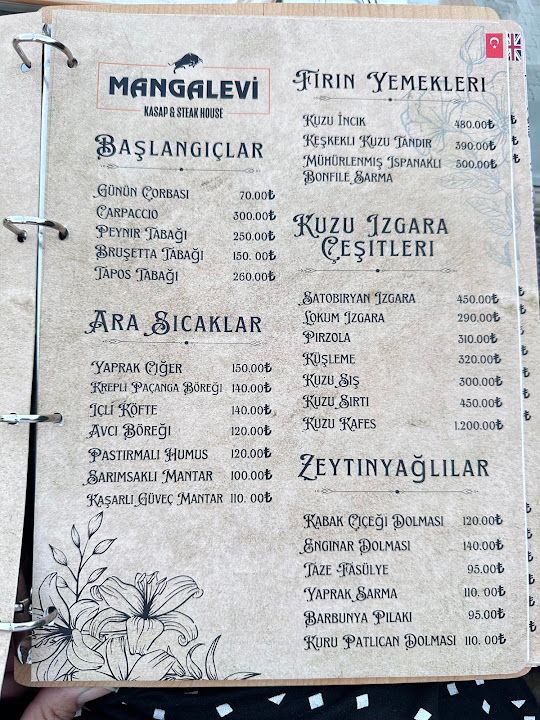 MANGALEVİ
KASAP & STEAK HOUSE
BAŞLANGIÇLAR
GÜNÜN ÇORBASI 70.00₺
CARPACCIO 300.00₺
PEYNIR TABAĞI 250.00₺
BRUŞETTA TABAĞI 150. 00₺
TAPOS TABAĞI 260.00₺
ARA SICAKLAR
YAPRAK CIĞER 150.00₺
KREPLI PAÇANGA BÖREĞI 140.00₺
IÇLI KÖFTE 140.00₺
AVCI BÖREĞI 120.00₺
PASTIRMALI HUMUS 120.00₺
SARIMSAKLI MANTAR 100.00₺
KAŞARLI GÜVEÇ MANTAR 110. 00₺
FIRIN YEMEKLERI
KUZU INCIK 480.00₺
KEŞKEKLI KUZU TANDIR 390.00₺
MÜHÜRLENMIŞ ISPANAKLI 500.00₺
BONFILE SARMA
KUZU IZGARA
ÇEŞITLERI
SATOBIRYAN IZGARA 450.00₺
LOKUM IZGARA 290.00₺
PIRZOLA 310.00₺
KÜŞLEME 320.00₺
KUZU ŞIŞ 300.00₺
KUZU SIRTI 450.00₺
KUZU KAFES 1.200.00₺
ZEYTINYAĞLILAR
KABAK ÇIÇEĞI DOLMASI 120.00₺
ENGINAR DOLMASI 140.00₺
TAZE FASÜLYE 95.00₺
YAPRAK SARMA 110. 00₺
BARBUNYA PILAKI 95.00₺
KURU PATLICAN DOLMASI 110. 00₺